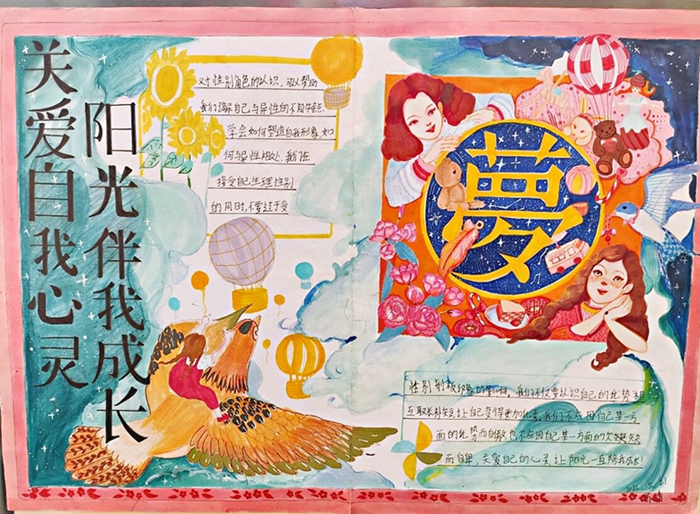 关爱自我心灵
阳光伴我成长
对性别角色的认识，可以帮助
我们了解自己与异性的不同特点
学会如何塑造自我形象，如
何与异性相处，我们在
接受自己生理性别
的同时，不要过于受
夢
性别刻板印象的影响，我们不仅要认识自己的优势，相
互取长补短，让自己变得更加优秀，我们不应因自己某一方
面的优势而自傲，也不应因自己某一方面的欠缺
而自卑，关爱自己的心灵，让阳光一直陪我成长！